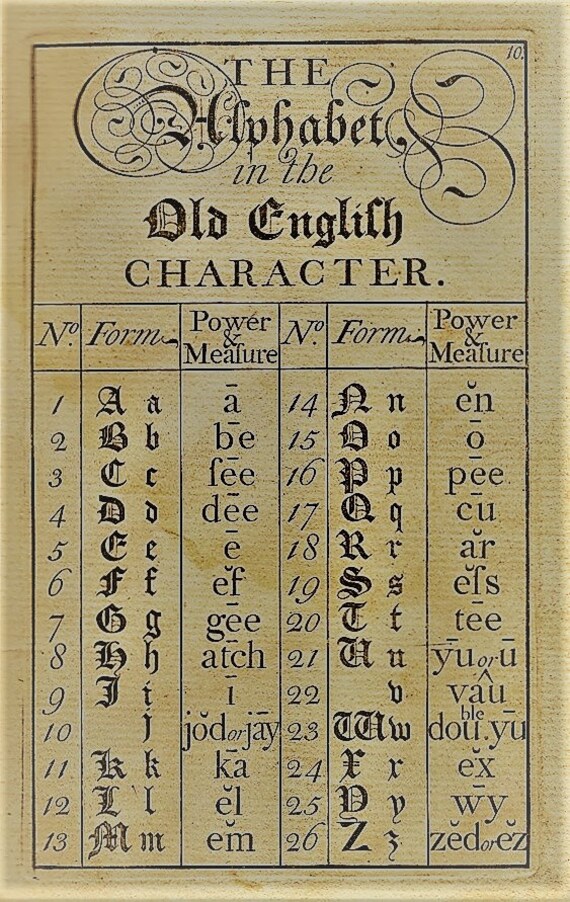 10.
THE
Alphabet
in the
Old Engliſh
CHARACTER.
Nº. Form. Power & Meaſure Nº. Form. Power & Meaſure
1 A a ā 14 N n ĕn
2 B b bē 15 O o ō
3 C c ſēe 16 P p pēe
4 D d dēe 17 Q q cū
5 E e ē 18 R r ăr
6 F f ĕf 19 S s ĕſs
7 G g gēe 20 T t tēe
8 H h ātch 21 U u ȳu or ū
9 I i ī 22 v vâu
10 j jŏd or jāy 23 W w double.yū
11 K k kā 24 X x ĕx
12 L l ĕl 25 Y y wȳ
13 M m ĕm 26 Z z zĕd or ĕz